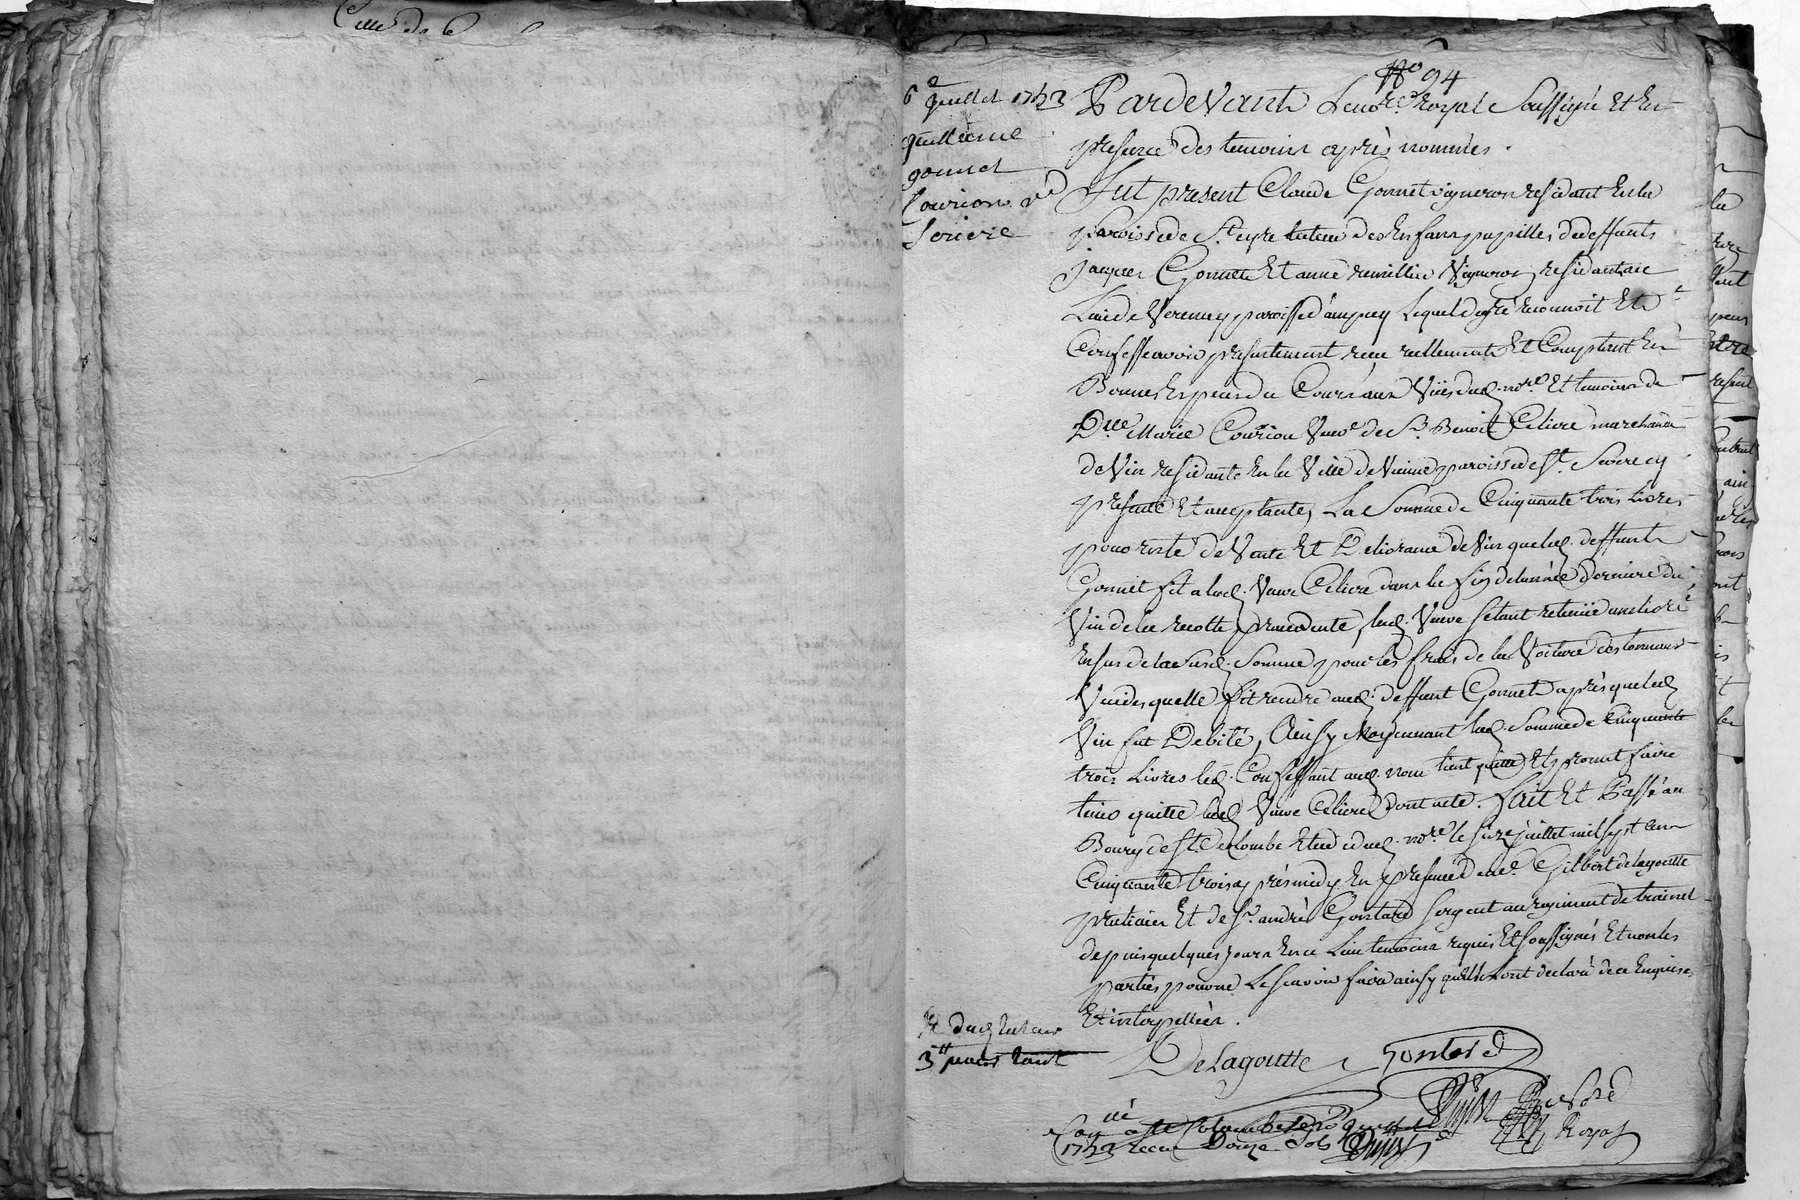 No 94
6e Juillet 1753
quittance
gonnet
Courion ve
Pardevant Le nore Royal Soussigné Et En
presence des temoins après nommés.
Fut present Claude Gonnet vigneron residant En la
paroisse de St cyre tuteur des Enfans pupilles de deffunts
jaques Gonnet Et anne Vigneron residant au
Lieu de Verenay paroisse d'ampuy Lequel de gré reconnoit Et
Confesse avoir presentement reçu reellement Et Comptant En
Bonnes Especes du Cours aux Vües dud. nore Et temoins de
Dlle Marie Courion Veuve de Sr Benoit marchand
de Vin residante En la Ville de Vienne paroisse de St Severe cy
presente Et acceptante, La Somme de Cinquante trois Livres
pour reste de Vente Et Delivrance de Vin que led. deffunt
Gonnet fit a lad. Veuve dans la fin de l'année derniere du
Vin de la recolte precedente, lad. Veuve s'etant retenüe
En sus de la susd. Somme pour les frais de la Voiture des tonneaux
Vuides quelle fit rendre aud. deffunt Gonnet après que led.
Vin fut Debité, Ainsy Moyennant lad. Somme de Cinquante
trois Livres led. Confessant aud. nom tient quitte Et promet faire
tenir quitte lad. Veuve dont acte. Fait Et Passé au
Bourg de Ste Colombe Etude dud. nore le sixe juillet mil sept cent
Cinquante trois après midy En presence de Me Gilbert delagoutte
praticien Et de Sr andré Gontard sergent au regiment de trainel
depuis quelques jours En ce Lieu temoins requis Et soussignés Et non les
parties pour ne Le scavoir faire ainsy qu'elles ont declaré de ce Enquises
Et interpellées.
DeLagoutte Gontard
Royal
Conné a Ste Colombe Le
1753 Recu Douze Sols